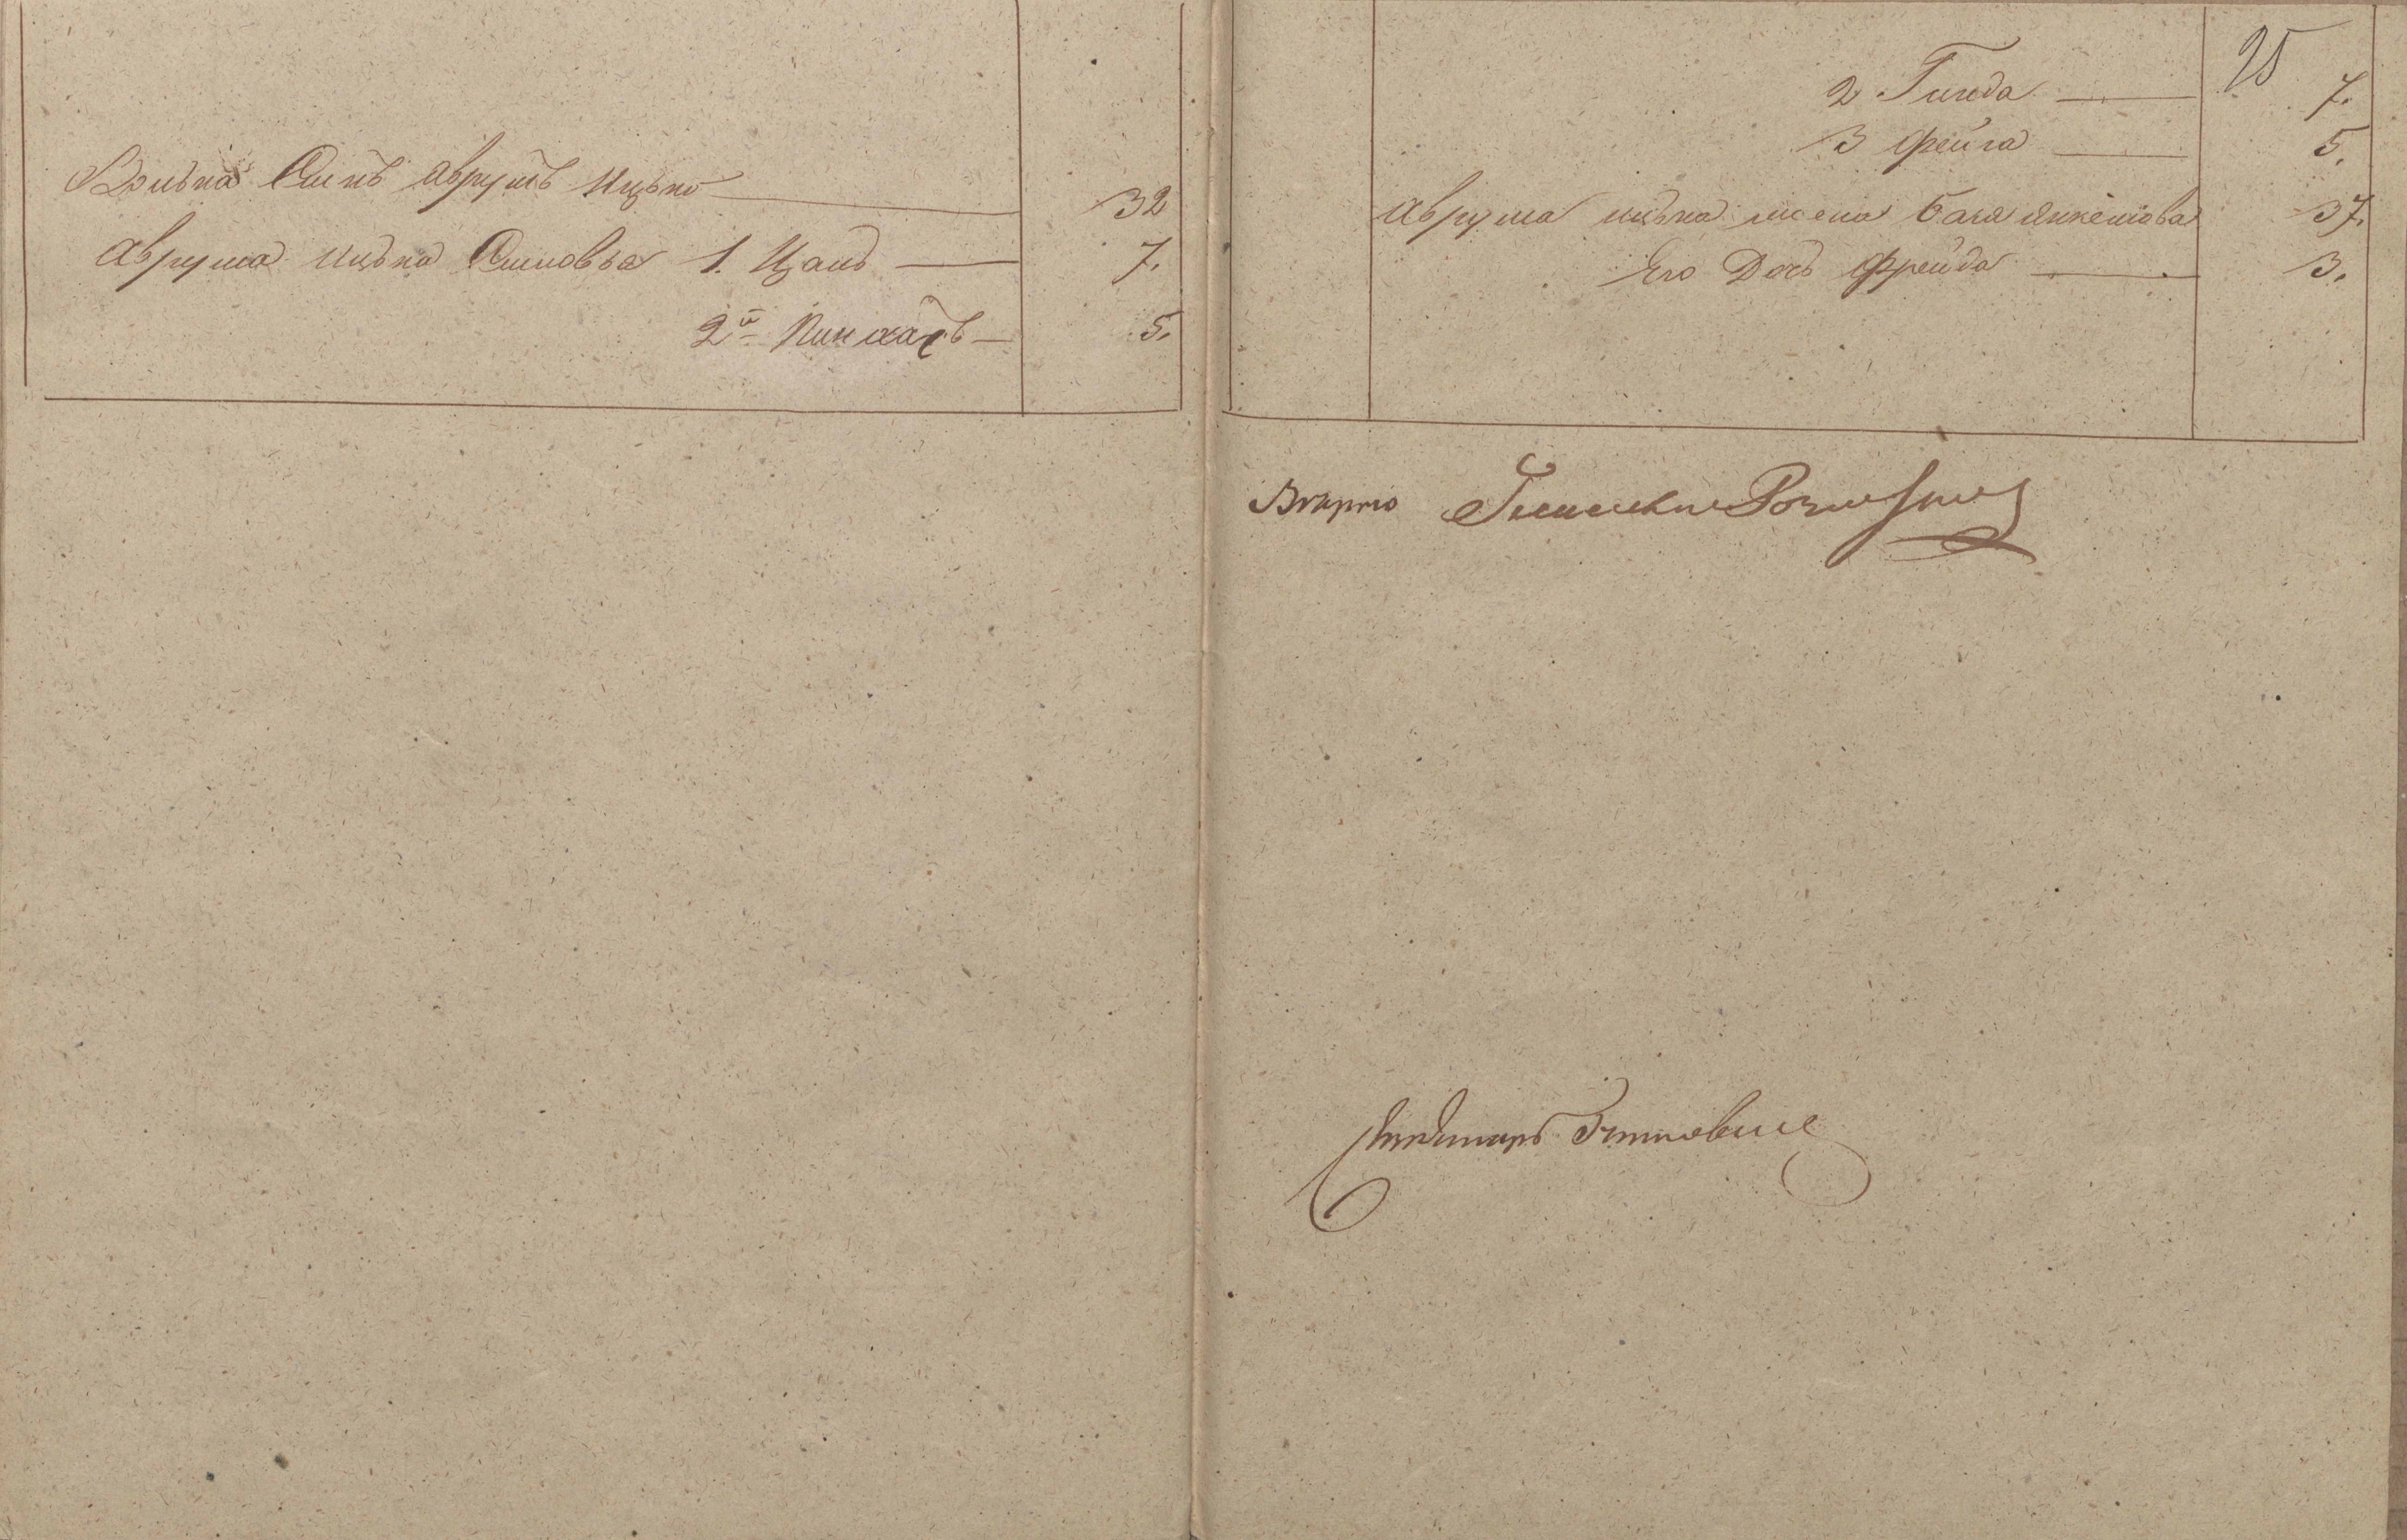 Волька Сынъ Аврумъ Ицько 32
Аврума Ицька Сыновья 1. Цаль 7.
2й Пинхасъ 5.
25
2 Гинда 7.
3 Фейга 5.
Аврума Ицька жена Бася Янкелiова 37.
Его Дочь Фрейда 3.